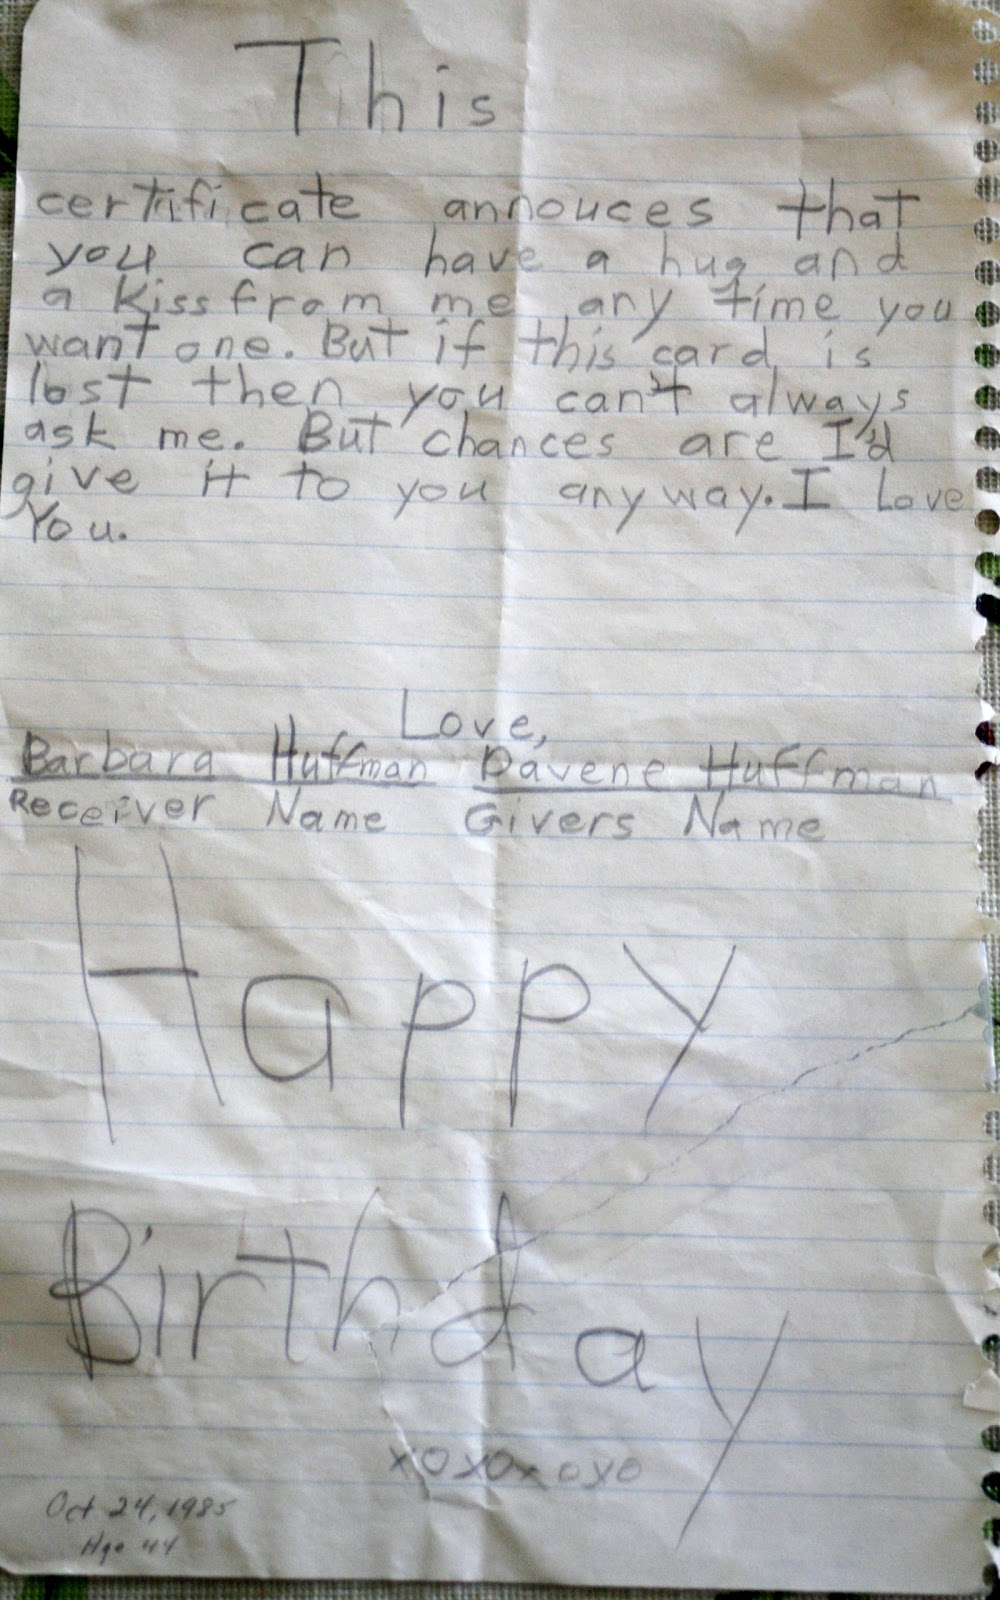 This
certificate annouces that
you can have a hug and
a kiss from me any time you
want one. But if this card is
lost then you can't always
ask me. But chances are I'd
give it to you anyway. I Love
You.
Love,
Barbara Huffman Davene Huffman
Receiver Name Givers Name
Happy
Birthday
xoxoxoxo
Oct 24, 1985
Age 44